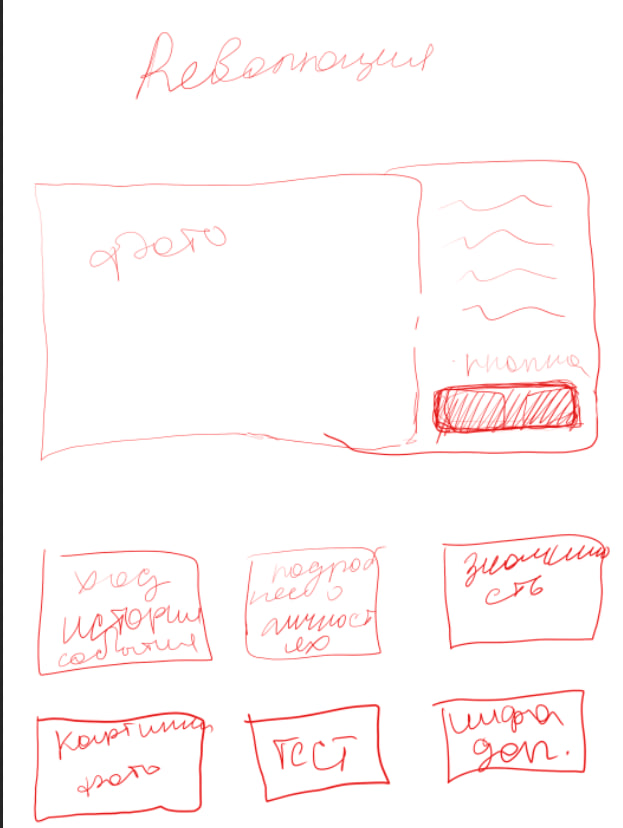 Революция
фото
кнопка
ход
истории
события
подроб
нее о
личност
ях
знаменито
сть
Картинки
фото
тест
инфа
доп.